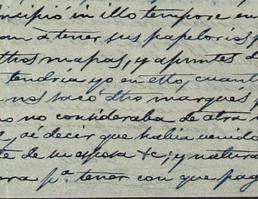 ncipió in illo tempore en
an á tener sus papelorios, p
ttros mapas, y apuntes d
tendria yo en ello, cuant
nos sacó dho marqués p
no consideraba de otra
y, oi decir que habia venido
te de su esposa &c; y natura
ara pª tener con que pag